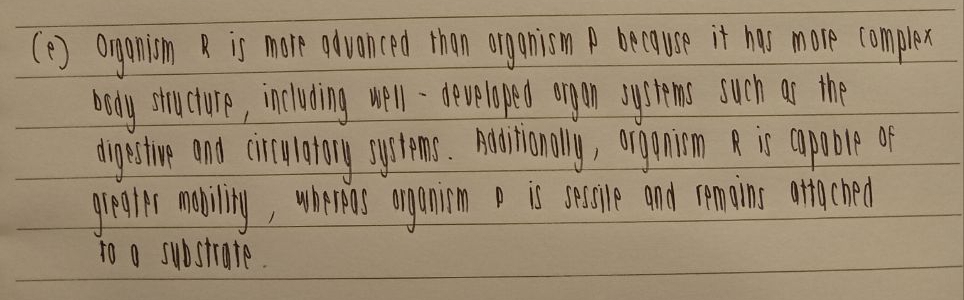 (e) Organism R is more advanced than organism P because it has more complex
body structure, including well-developed organ systems such as the
digestive and circulatory systems. Additionally, organism R is capable of
greater mobility, whereas organism P is sessile and remains attached
to a substrate.